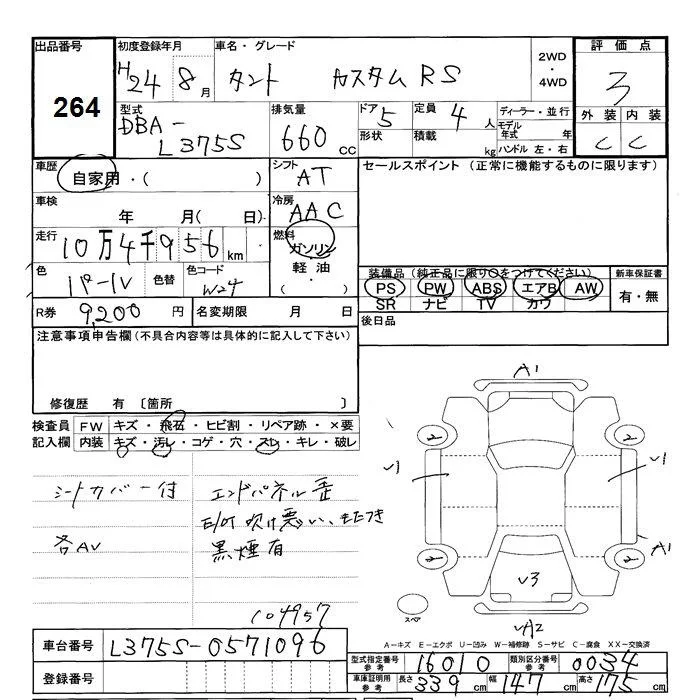 出品番号 初度登録年月 車名・グレード 2WD・4WD 評価点
264 H24 8月 タント カスタムRS 3
型式 排気量 ドア 定員 ディーラー・並行 外装 内装
DBA-L375S 660cc 5 4人 モデル年式 年 C C
形状 積載 kg ハンドル 左・右
車歴 自家用・( ) シフト AT セールスポイント (正常に機能するものに限ります)
車検 年 月( 日) 冷房 AAC
走行 10万4千956km 燃料 ガソリン
色 パール 色替 色コード W24 軽油・( )
装備品 (純正品に限り○をつけてください) 新車保証書
PS PW ABS エアB AW 有・無
SR ナビ TV カワ
R券 9,200円 名変期限 月 日 後日品
注意事項申告欄(不具合内容等は具体的に記入して下さい)
修復歴 有 〔箇所 〕
検査員 FW キズ・飛石・ヒビ割・リペア跡・×要
記入欄 内装 キズ・汚レ・コゲ・穴・スレ・キレ・破レ
シートカバー付 エンドパネル歪
E/OT 吹け悪い、もたつき
各AV 黒煙有
104957
A1
2 2
V1 V1
A1
2 2
V3
スペア
VA2
A-キズ E-エクボ U-凹み W-補修跡 S-サビ C-腐食 XX-交換済
車台番号 L375S-0571096
型式指定番号 参考 16010 類別区分番号 参考 0034
登録番号
車庫証明用 参考 長さ 339cm 幅 147cm 高さ 175cm